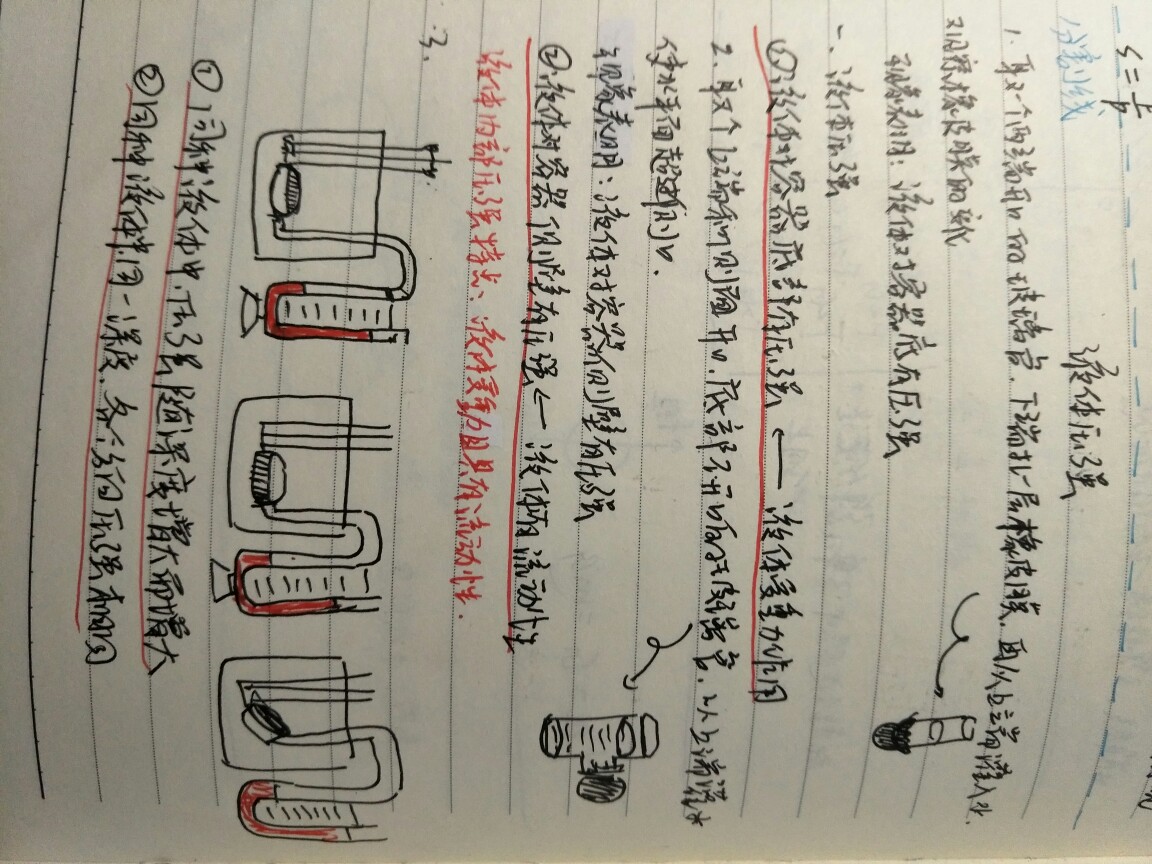 S = F/P
分割线
液体压强
1. 取一个两端开口的玻璃管，下端扎一层橡皮膜，再从上端灌入水.
观察橡皮膜的变化
现象表明：液体对容器底有压强
一、液体压强
①液体对容器底部有压强 ← 液体受重力作用
2. 取个上端和侧面开口，底部不开口的玻璃管，从上端灌水
使水平面超过侧口.
现象表明：液体对容器侧壁有压强
②液体对容器侧壁有压强 ← 液体有流动性
液体内部压强特点、液体受重力且具有流动性.
3.
①同种液体中，压强随深度增大而增大
②同种液体同一深度，各个方向压强相同